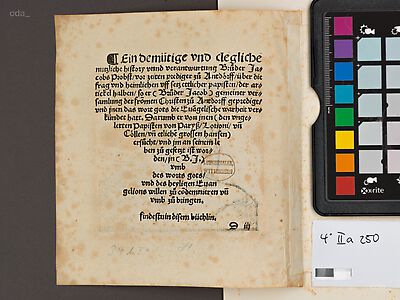 cda_
¶ Ein demütige vnd clegliche
nutzliche history vnnd verantwurttung Brůder Ja
cobs Probst/ vor zeiten prediger zu Antdorff/ über die
frag vnd heimlichen vff setz ettlicher papisten/ der ar
tickel halben/ so er (Brůder Jacob) gemeiner ver
samlung der fromen Cristen zu Antdorff geprediget/
vnd jnen das wort gots die Euãgelische warheit ver
kündet hatt. Darumb er von jnen (den vnge
lerten Papisten von Paryß/ Louoni/ vñ
Cöllen/ vñ etliche grossen hansen)
ersůcht/ vnd jm an seinem le
ben zů gesetzt ist wor/
den/ jn (B. J.)
vmb
des worts gots/
vnd des heyligen Euan
gelions willen zů condemnieren vñ
vmb zů bringen.
findestu in disem büchlin.
4° II a 250
x-rite